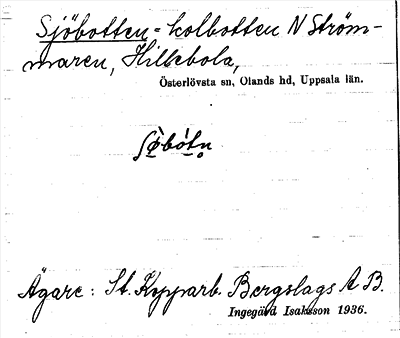 Sjöbotten = kolbotten N Ström-
maren, Hillebola,
Österlövsta sn, Olands hd, Uppsala län.
Ägare: St. Kopparb. Bergslags A B.
Ingegärd Isaksson 1936.